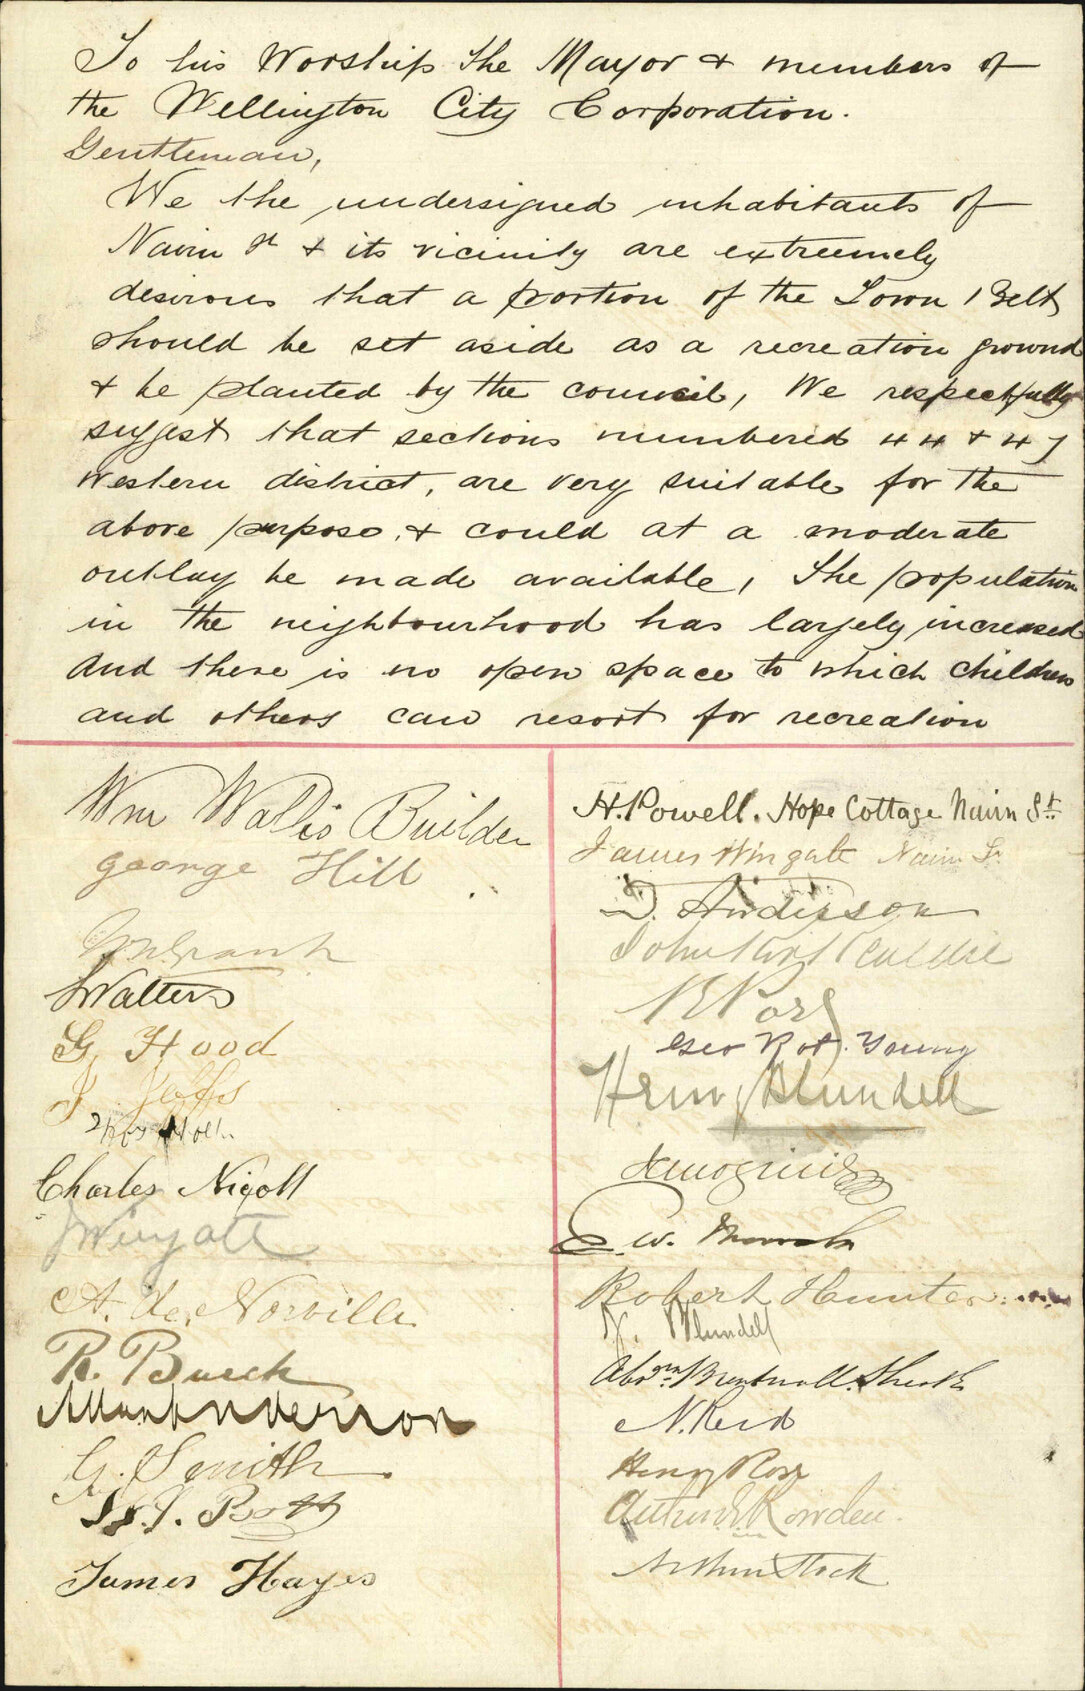 To his Worship the Mayor & members of
the Wellington City Corporation.
Gentleman,
We the undersigned inhabitants of
Nairn St & its vicinity are extreemely
desirous that a portion of the Town Belt
should be set aside as a recreation ground
& be planted by the council, We respectfully
suggest that sections numbered 44 & 47
Western district, are very suitable for the
above purpose, & could at a moderate
outlay be made available, The population
in the neighbourhood has largely increased
And there is no open space to which children
and others can resort for recreation
Wm Wallis Builder
George Hill
Grant
Walters
G. Hood
J. Jeffs
Holt
Charles Nicoll
J Wingate
A. de Norville
R. Buick
Anderson
G. Smith
Bott
James Hayes
H. Powell. Hope Cottage Nairn St.
James Wingate Nairn St.
D. Anderson
John
Geo Rot. Young
Henry Blundell
W.
Robert Hunter
Blundell
N. Reid
Henry Rose
Rowden
Arthur Stock